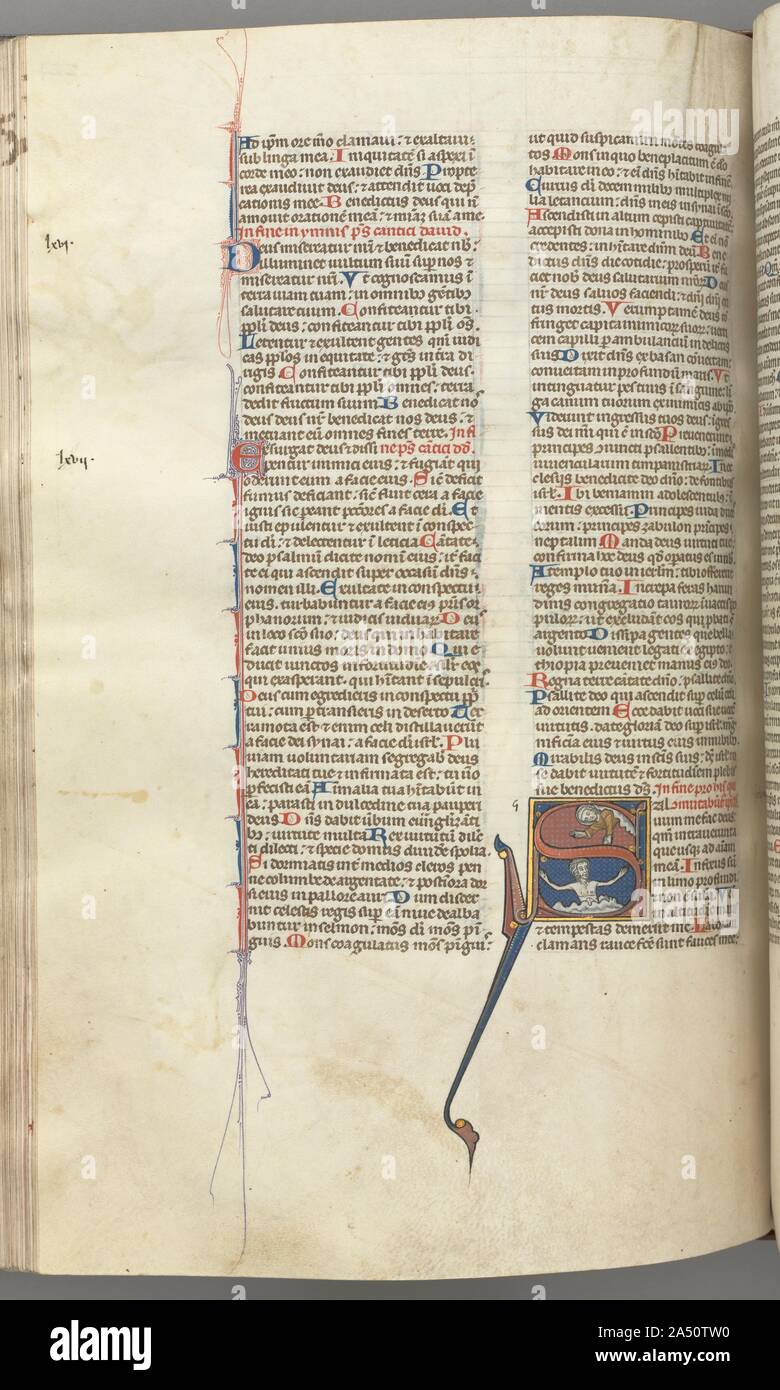 Ad ipm ore meo clamaui: & exaltaui
sub lingua mea. Iniquitate si aspexi i
corde meo: non exaudiet dns. Propte
rea exaudiuit deus: & attendit uoci dep
cationis mee. Benedictus deus qui n
amouit orationem mea: & miam sua a me.
In fine in ymnis ps cantici dauid.
lxvi.
Deus misereatur nri & benedicat nob:
illuminet uultum suu sup nos &
misereatur nri. Vt cognoscamus i
terra uiam tuam: in omnibus gentibus
salutare tuum. Confiteantur tibi
ppli deus: confiteantur tibi ppli os.
Letentur & exultent gentes qm iudi
cas pplos in equitate: & gtes in tra di
rigis Confiteantur tibi ppli deus.
confiteantur tibi ppli omnes: terra
dedit fructum suum Benedicat nos
deus deus nr benedicat nos deus: &
metuant eu omnes fines terre. In fi
lxvii.
Exsurgat deus & dissi ne ps catici dd.
pentur inimici eius: & fugiant qui
oderunt eum a facie eius. Sic deficit
fumus deficiant: sic fluit cera a facie
ignis sic pereant pctores a facie di. Et
iusti epulentur & exultent i conspec
tu di: & delectentur i leticia Catate
deo psalmum dicite nomini eius: iter faci
te ei qui ascendit super occasu dns
nomen illi. Exultate in conspectu
eius. turbabuntur a facie eius pris or
phanorum: & iudicis uiduar Deus
in loco sco suo: deus qui inhabitare
facit unius moris in domo Qui e
ducit uinctos in fortitudine: silr eos
qui exasperant. qui hitant i sepulcris.
Deus cum egredieris in conspectu ppli
tui: cum ptransieris in deserto Terra
mota est & enim celi distillauerut
a facie dei synai: a facie di isrl. Plu
uiam uoluntariam segregabis deus
hereditati tue & infirmata est: tu uo
pfecisti ea Animalia tua hitabut in
ea: parasti in dulcedine tua pauperi
deus Dns dabit uerbum euuangelizanti
bus: uirtute multa Rex uirtutu dilec
ti dilecti: & speciei domus diuidere spolia.
Si dormiatis int medios cleros pen
ne columbe deargentate: & posteriora dor
si eius in pallore auri Dum discer
nit celestis reges sup ea niue dealba
buntur in selmon: mos di mos pi
guis. Mons coagulatus mos pinguis:
ut quid suspicamini motes coagu
tos Mons in quo beneplacitum e deo
habitare in eo: & eni dns hitabit in fine.
Currus di decem milibus multiplex mi
lia letancium: dns in eis in synai i sco.
Ascendisti in altum cepisti captiuitate:
accepisti dona in hominibus Et eni no
credentes: inhitare dnm deu Bene
dictus dns die cotidie: prosperu iter fa
ciet nobis deus salutarium nror Deus
nr deus saluos faciendi: & dni dni exi
tus mortis. Verumptamen deus con
fringet capita inimicorum suor: uerti
cem capilli pambulanciu in delictis
suis Dixit dns ex basan conuertam:
conuertam in profundu maris. Vt
intinguatur pes tuus i sanguine: li
ga canum tuorum ex inimicis ab ipo
Viderunt ingressus tuos deus: igres
sus dei mei qui e in sco Preuenerunt
principes coniuncti psallentibus: i medio
iuuencularum timpanistriar. In ec
clesiis benedicite deo dno: de fontibus
isrl. Ibi beniamin adolescentulus: i
mentis excessu. Principes iuda duces
eorum: principes zabulon principes
neptalim Manda deus uirtuti tue:
confirma hoc deus qd operatus es in nob.
A templo tuo in ierlm: tibi offerent
reges munera. Increpa feras harun
dinis congregatio tauror i uaccis po
pulor: ut excludat eos qui pbati st
argento Dissipa gentes que bella
uolunt uenient legati ex egipto: e
thiopia preueniet manus eius deo.
Regna terre catate deo: psallite dno.
Psallite deo qui ascendit sup celu celi
ad orientem Ecce dabit uoci sue uoce
uirtutis. date gloriam deo sup isrl: mag
nificia eius & uirtus eius i nubibus.
Mirabilis deus in scis suis: ds isrl ip
se dabit uirtute & fortitudinem plebi
sue benedictus ds. In fine pro his qui
Saluum me fac deus:
qm intrauerunt aque
usque ad animam
meam. Infixus sum
in limo profundi
& tempestas demersit me. Laboraui
clamans rauce fce sunt fauces mee:
alamy
Image ID: 2A50TW0
www.alamy.com